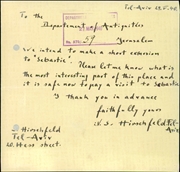 Tel-Aviv
To the
Departement of Antiquities
Jerusalem
We intend to make a short extension
to "Sebastie". Please let me know what is
the most interesting part of this place and
it is safe now to pay a visit to Sebastie.
I thank you in advance
faithfully yours
S. Hirschfeld
S. Hirschfeld
Tel-Aviv
Tel-Aviv